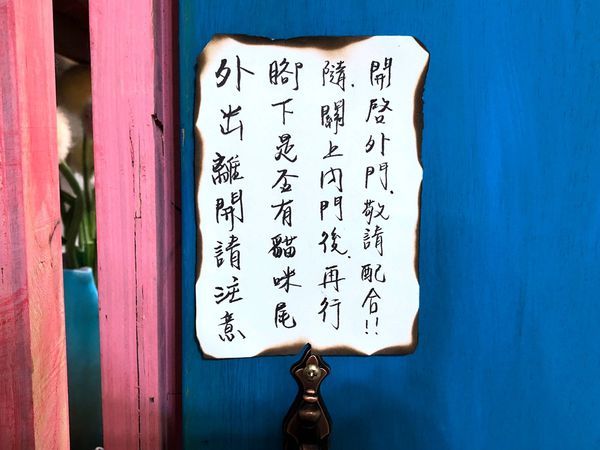 外出離開請注意
腳下是否有貓咪尾
隨、關上內門後、再行
開啓外門、敬請配合!!